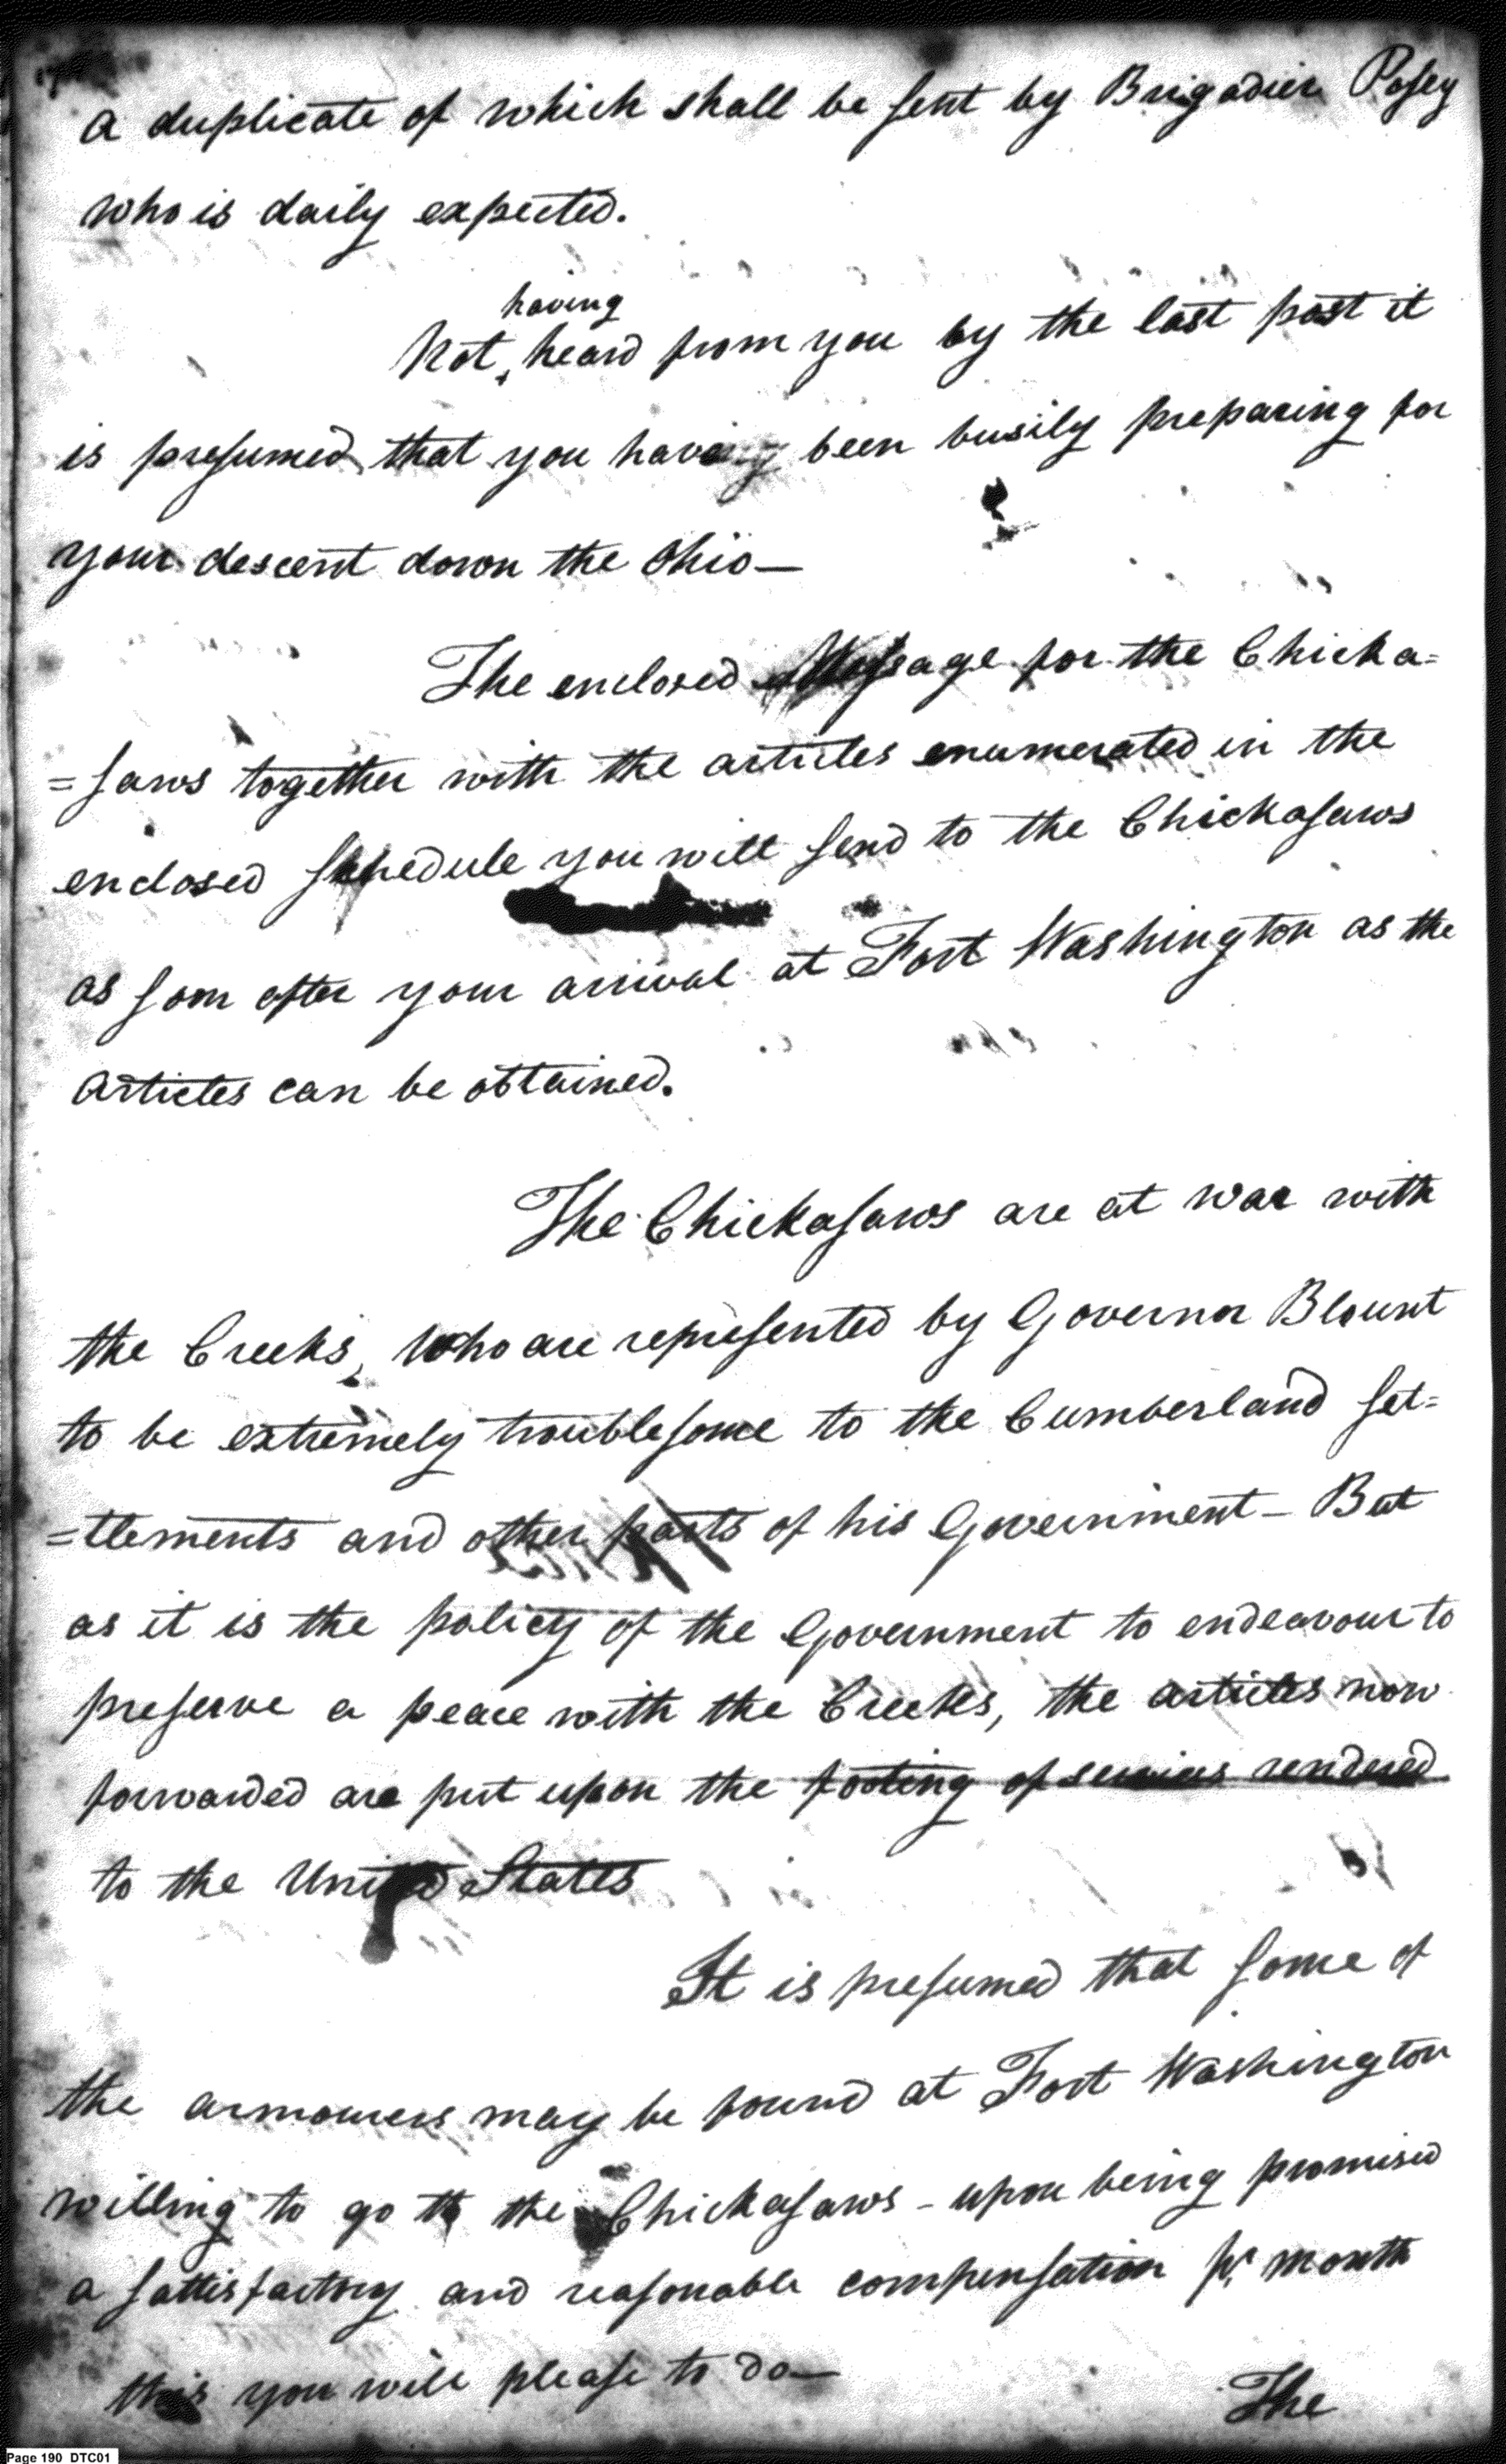 a duplicate of which shall be sent by Brigadier Posey
who is daily expected.
having
Not heard from you by the last post it
is presumed that you having been busily preparing for
your descent down the Ohio—
The enclosed Message for the Chicka=
=saws together with the articles enumerated in the
enclosed schedule you will send to the Chickasaws
as soon after your arrival at Fort Washington as the
articles can be obtained.
The Chickasaws are at war with
the Creeks, who are represented by Governor Blount
to be extremely troublesome to the Cumberland set=
=tlements and other parts of his Government— But
as it is the policy of the Government to endeavour to
preserve a peace with the Creeks, the articles now
forwarded are put upon the footing of services rendered
to the United States
It is presumed that some of
the armourers may be found at Fort Washington
willing to go to the Chickasaws – upon being promised
a sattisfactory and reasonable compensation pr. month
this you will please to do—
The
Page 190 DTC01